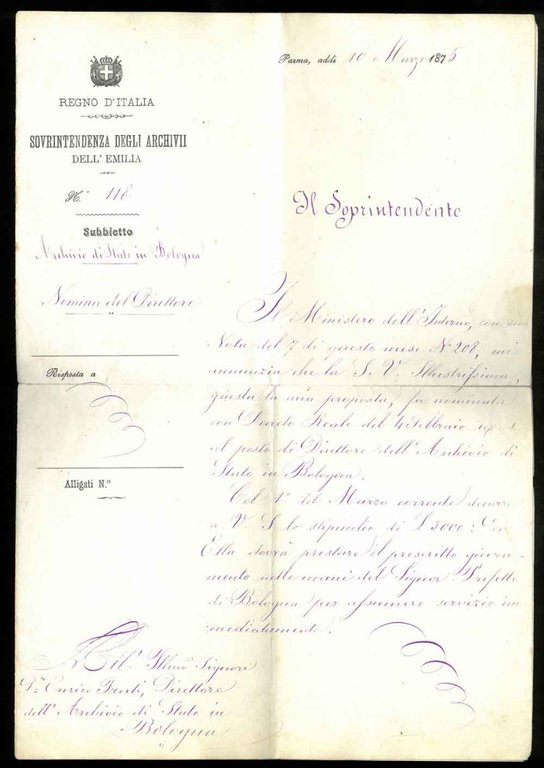 REGNO D'ITALIA
SOVRINTENDENZA DEGLI ARCHIVII
DELL'EMILIA
N.° 118
Subbietto
Archivio di Stato in Bologna
Nomina del Direttore
Risposta a
Alligati N.°
Parma, addì 10 Marzo 1875
Il Soprintendente
Il Ministero dell'Interno, con sua
Nota del 7 di questo mese N° 208, mi
annunzia che la S. V. Illustrissima,
giusta la mia proposta, fu nominata
con Decreto Reale del 4 Febbraio
al posto di Direttore dell'Archivio di
Stato in Bologna.
Col 1° del Marzo corrente decorre
a V. S. lo stipendio di L 3000:
Ella dovrà prestare il prescritto giura-
mento nelle mani del Signor Prefetto
di Bologna per assumere servizio im
mediatamente.
All' Illmo Signore
Dr. Enrico Frati, Direttore
dell'Archivio di Stato in
Bologna